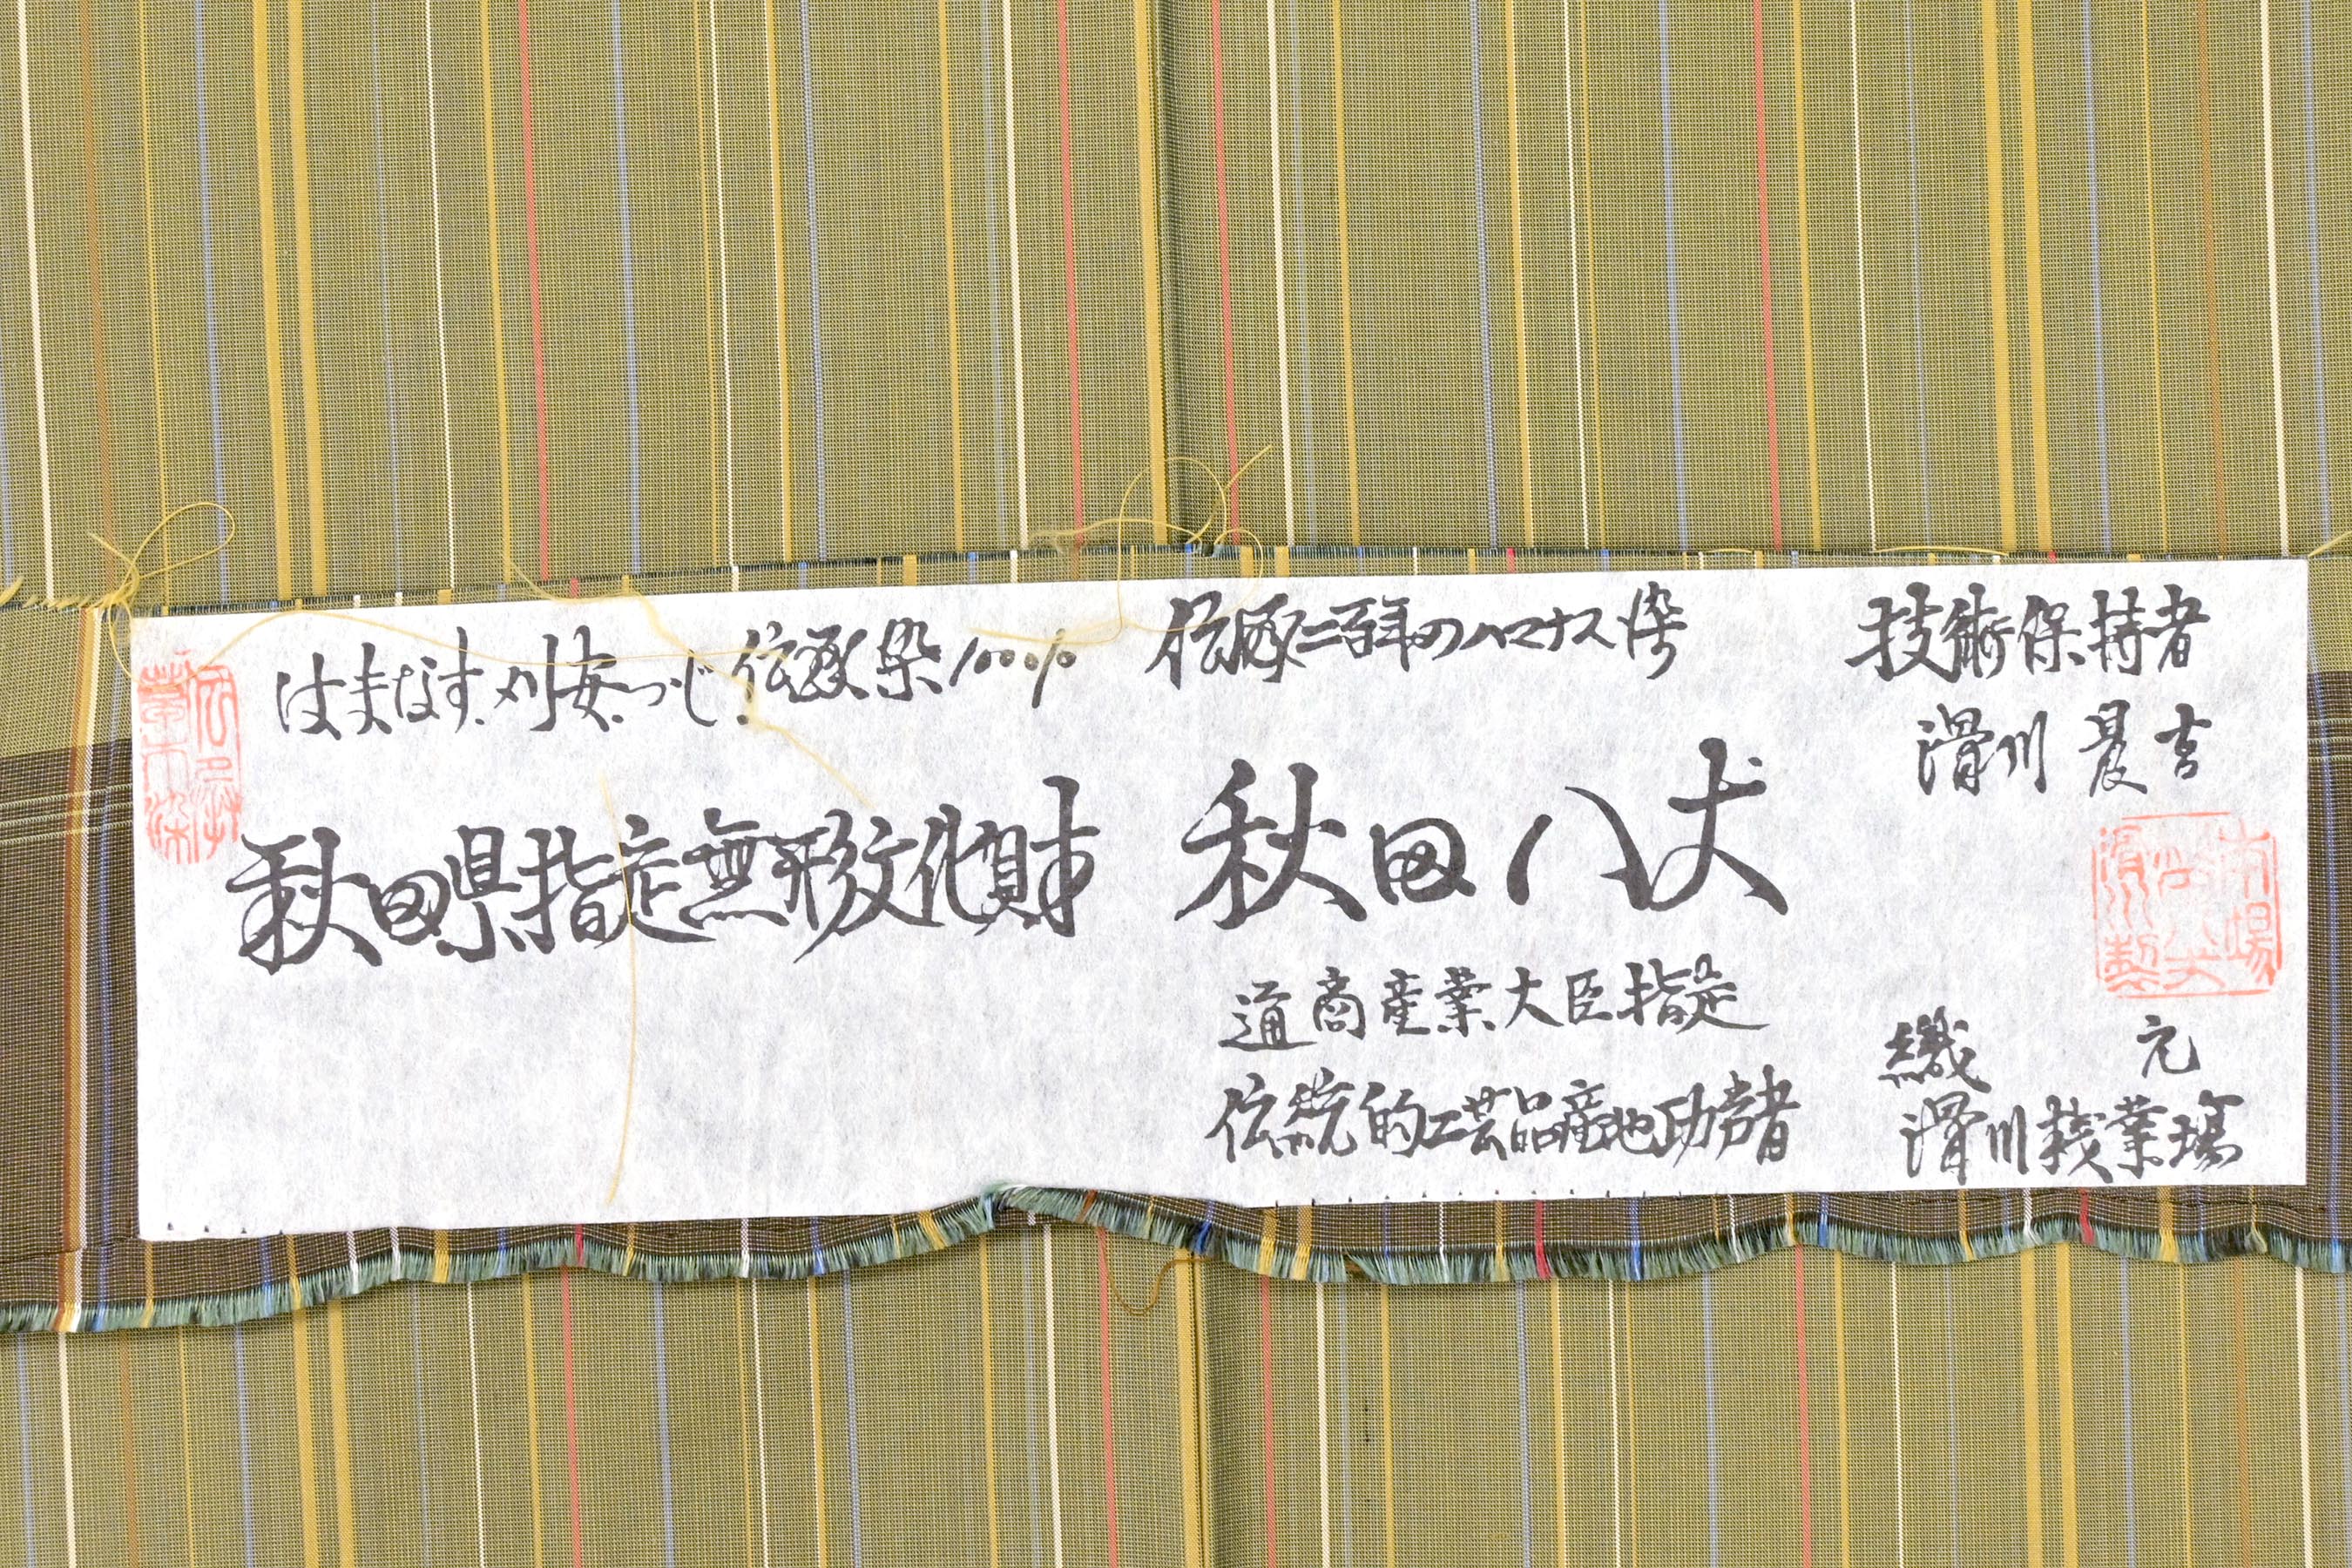 技術保持者
滑川 晨吉
織 元
滑川機業場
伝承二百年のハマナス染
秋田八丈
通商産業大臣指定
伝統的工芸品産地功労者
はまなす、刈安、つゝじ伝承染100%
秋田県指定無形文化財